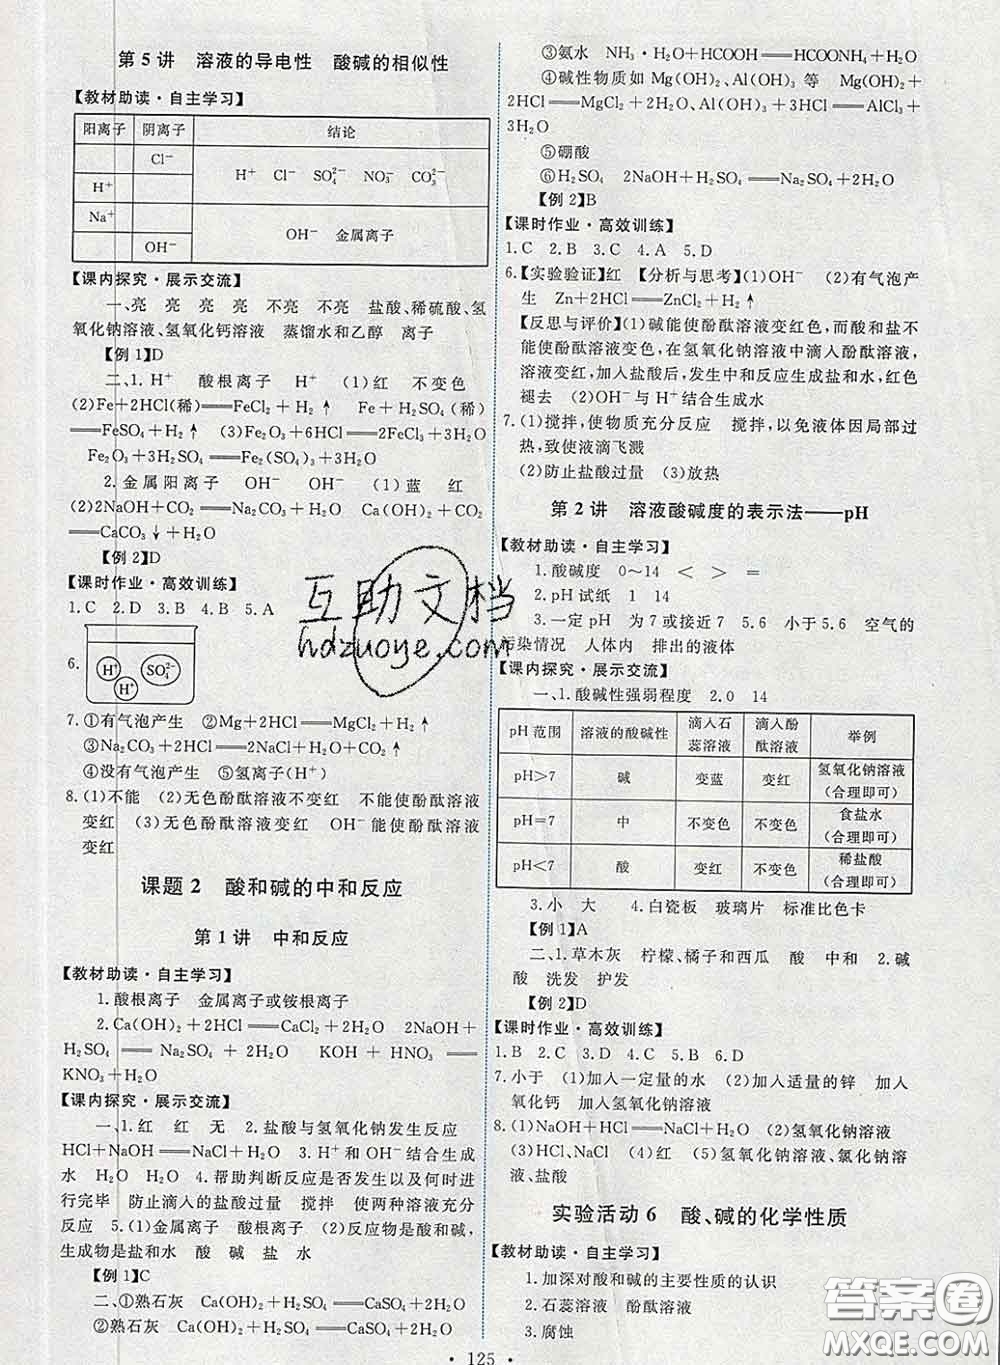 第5讲 溶液的导电性 酸碱的相似性
【教材助读·自主学习】
阳离子 阴离子 结论
Cl⁻
H⁺
H⁺ Cl⁻ SO₄²⁻ NO₃⁻ CO₃²⁻
Na⁺
OH⁻
OH⁻ 金属离子
【课内探究·展示交流】
一、亮 亮 亮 亮 不亮 不亮 盐酸、稀硫酸、氢
氧化钠溶液、氢氧化钙溶液 蒸馏水和乙醇 离子
【例1】D
二、1.H⁺ 酸根离子 H⁺ (1)红 不变色
(2)Fe+2HCl(稀)══FeCl₂+H₂↑ Fe+H₂SO₄(稀)
══FeSO₄+H₂↑ (3)Fe₂O₃+6HCl══2FeCl₃+3H₂O
Fe₂O₃+3H₂SO₄══Fe₂(SO₄)₃+3H₂O
2.金属阳离子 OH⁻ OH⁻ (1)蓝 红
(2)2NaOH+CO₂══Na₂CO₃+H₂O Ca(OH)₂+CO₂══
CaCO₃↓+H₂O
【例2】D
【课时作业·高效训练】
1.C 2.D 3.B 4.B 5.A
6. H⁺ H⁺ SO₄²⁻
7.①有气泡产生 ②Mg+2HCl══MgCl₂+H₂↑
③Na₂CO₃+2HCl══2NaCl+H₂O+CO₂↑
④没有气泡产生 ⑤氢离子(H⁺)
8.(1)不能 (2)无色酚酞溶液不变红 不能使酚酞溶液
变红 (3)无色酚酞溶液变红 OH⁻能使酚酞溶液
变红
课题2 酸和碱的中和反应
第1讲 中和反应
【教材助读·自主学习】
1.酸根离子 金属离子或铵根离子
2.Ca(OH)₂+2HCl══CaCl₂+2H₂O 2NaOH+
H₂SO₄══Na₂SO₄+2H₂O KOH+HNO₃══
KNO₃+H₂O
【课内探究·展示交流】
一、1.红 红 无 2.盐酸与氢氧化钠发生反应
HCl+NaOH══NaCl+H₂O 3.H⁺和OH⁻结合生成
水 H₂O H₂O 4.帮助判断反应是否发生以及何时进
行完毕 防止滴入的盐酸过量 搅拌 使两种溶液充分
反应 5.(1)金属离子 酸根离子 (2)反应物是酸和碱,
生成物是盐和水 酸 碱 盐 水
【例1】C
二、①熟石灰 Ca(OH)₂+H₂SO₄══CaSO₄+2H₂O
②熟石灰 Ca(OH)₂+H₂SO₄══CaSO₄+2H₂O
③氨水 NH₃·H₂O+HCOOH══HCOONH₄+H₂O
④碱性物质如Mg(OH)₂、Al(OH)₃等 Mg(OH)₂+
2HCl══MgCl₂+2H₂O、Al(OH)₃+3HCl══AlCl₃+
3H₂O
⑤硼酸
⑥H₂SO₄ 2NaOH+H₂SO₄══Na₂SO₄+2H₂O
【例2】B
【课时作业·高效训练】
1.C 2.B 3.C 4.A 5.D
6.【实验验证】红 【分析与思考】(1)OH⁻ (2)有气泡产
生 Zn+2HCl══ZnCl₂+H₂↑
【反思与评价】(1)碱能使酚酞溶液变红色,而酸和盐不
能使酚酞溶液变色,在氢氧化钠溶液中滴入酚酞溶液,
溶液变红,加入盐酸后,发生中和反应生成盐和水,红色
褪去 (2)OH⁻与H⁺结合生成水
7.(1)搅拌,使物质充分反应 搅拌,以免液体因局部过
热,致使液滴飞溅
(2)防止盐酸过量 (3)放热
第2讲 溶液酸碱度的表示法——pH
【教材助读·自主学习】
1.酸碱度 0~14 < > =
2.pH试纸 1 14
3.一定pH 为7或接近7 5.6 小于5.6 空气的
污染情况 人体内 排出的液体
【课内探究·展示交流】
一、1.酸碱性强弱程度 2.0 14
pH范围 溶液的酸碱性 滴入石蕊溶液 滴入酚酞溶液 举例
pH>7 碱 变蓝 变红 氢氧化钠溶液(合理即可)
pH=7 中 不变色 不变色 食盐水(合理即可)
pH<7 酸 变红 不变色 稀盐酸(合理即可)
3.小 大 4.白瓷板 玻璃片 标准比色卡
【例1】A
二、1.草木灰 柠檬、橘子和西瓜 酸 中和 2.碱
酸 洗发 护发
【例2】D
【课时作业·高效训练】
1.B 2.C 3.D 4.C 5.B 6.D
7.小于 (1)加入一定量的水 (2)加入适量的锌 加入
氧化钙 加入氢氧化钠溶液
8.(1)NaOH+HCl══NaCl+H₂O (2)氢氧化钠溶液
(3)HCl、NaCl (4)< (5)氢氧化钠溶液、氯化钠溶
液、盐酸
实验活动6 酸、碱的化学性质
【教材助读·自主学习】
1.加深对酸和碱的主要性质的认识
2.石蕊溶液 酚酞溶液
3.腐蚀
· 125 ·
互助文档
hdzuoye.com
答案圈
MXQE.COM